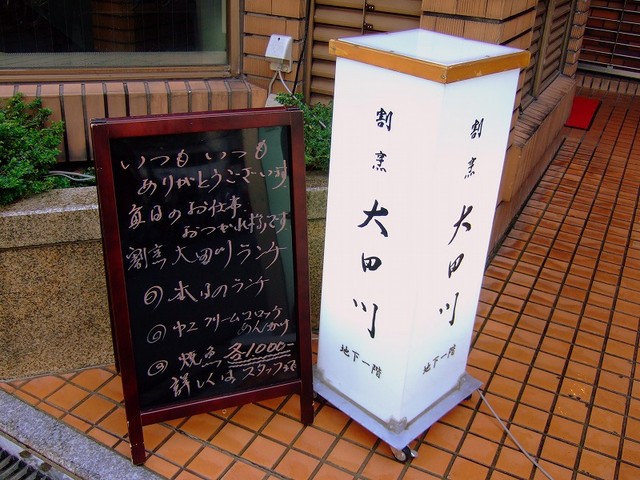 いつも いつも
ありがとうございます。
真日のお仕事
おつかれさまです
割烹 大田川ランチ
本日のランチ
カニクリームコロッケ
あんかけ
焼魚 各1000-
詳しくは スタッフまで
割烹 大田川
地下一階
割烹 大田川
地下一階